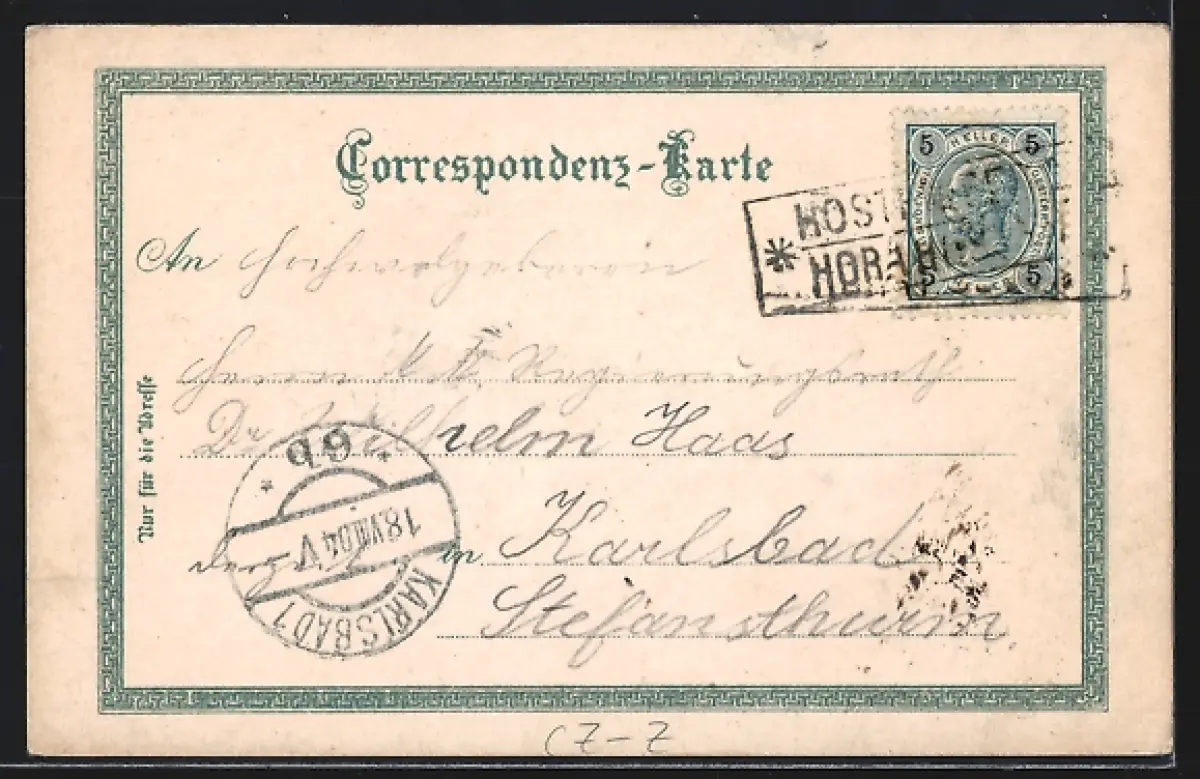 Correspondenz-Karte
5 HELLER 5
5 5
HOST
HORA
An Hochwolgeboren
Herrn k. k. Regierungsrath
Dr. Wilhelm Haas
derzeit in Karlsbad
Stefansthurm
Nur für die Adresse
18.VIII.04 V
KARLSBAD 1
* 6b *
CZ-Z